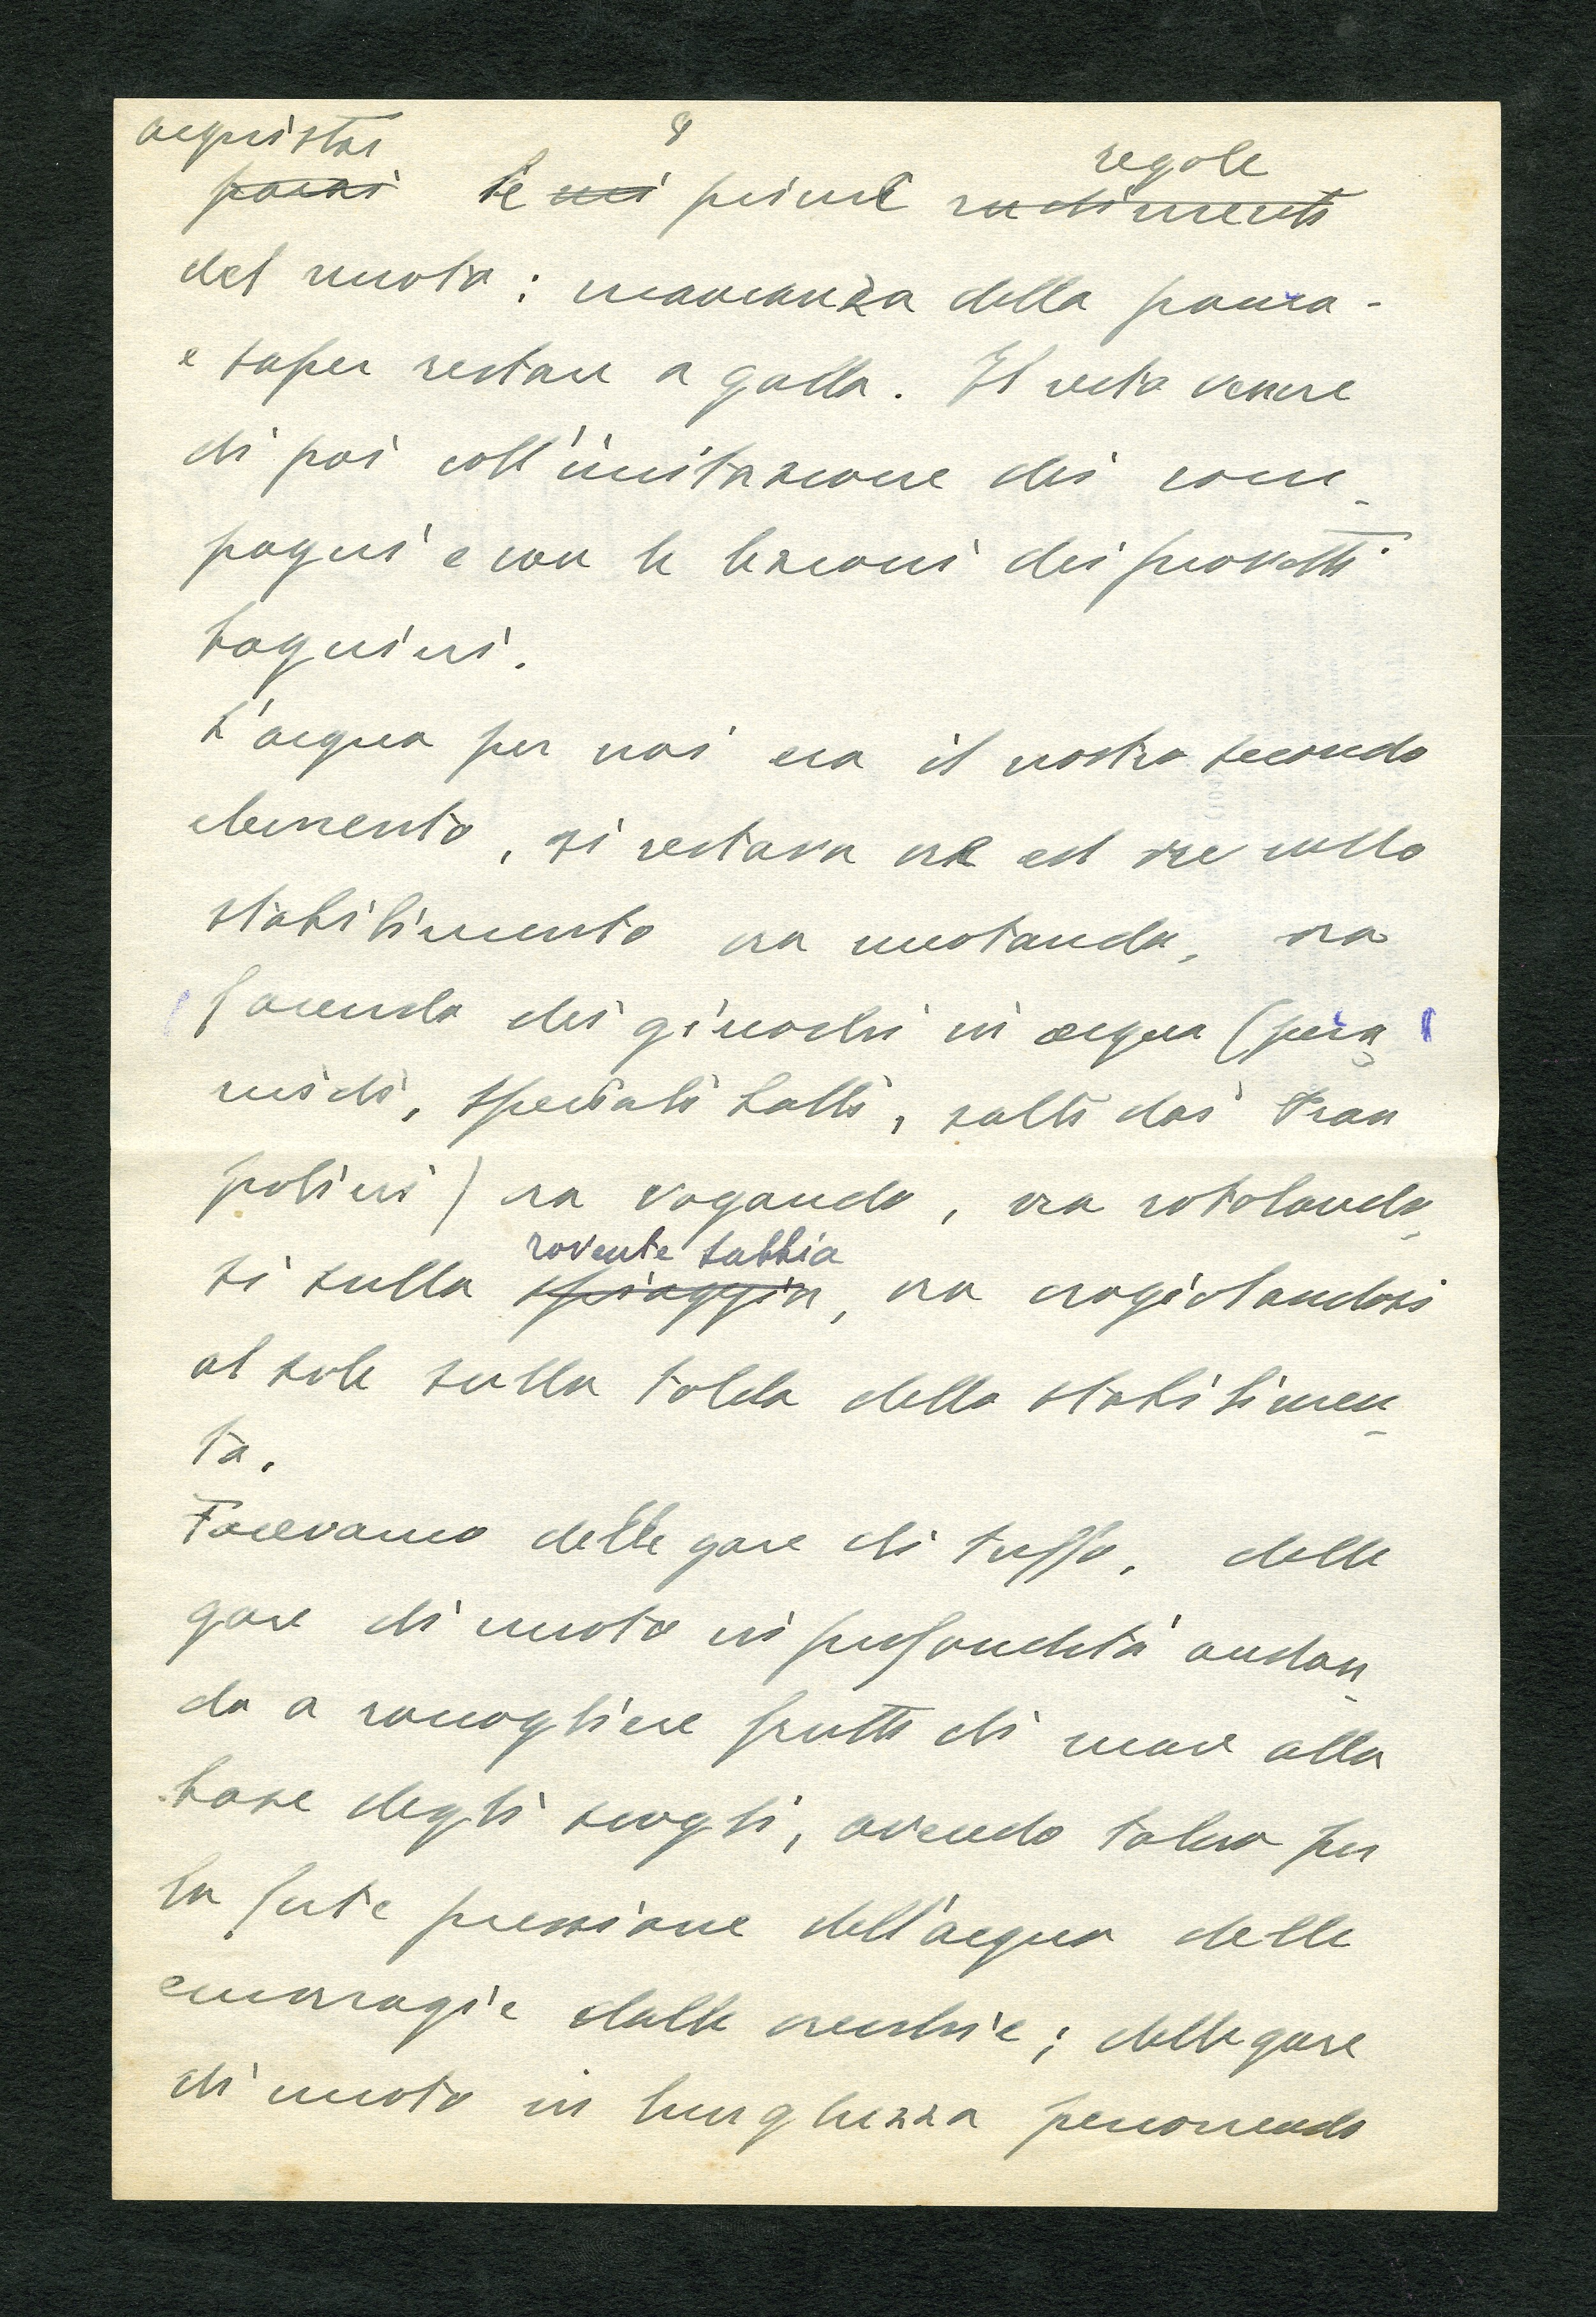 acquistai
8
regole
le primi
del nuoto: mancanza della paura -
e saper restare a galla. Il resto venne
di poi coll'imitazione dei com-
pagni e con le lezioni dei provetti
bagnini.
L'acqua per noi era il nostro secondo
elemento, si restava ore ed ore sullo
stabilimento ora nuotando, ora
facendo dei giuochi in acqua (pira
midi, speciali balli, salti dai tram
polini) ora vogando, ora rotolando-
rovente sabbia
si sulla spiaggia, ora crogiolandosi
al sole sulla tolda dello stabilimen-
to.
Facevamo delle gare di tuffo, delle
gare di nuoto in profondità andan-
do a raccogliere frutti di mare alla
base degli scogli, avendo talora per
la forte pressione dell'acqua delle
emorragie dalle orecchie; delle gare
di nuoto in lunghezza percorrendo